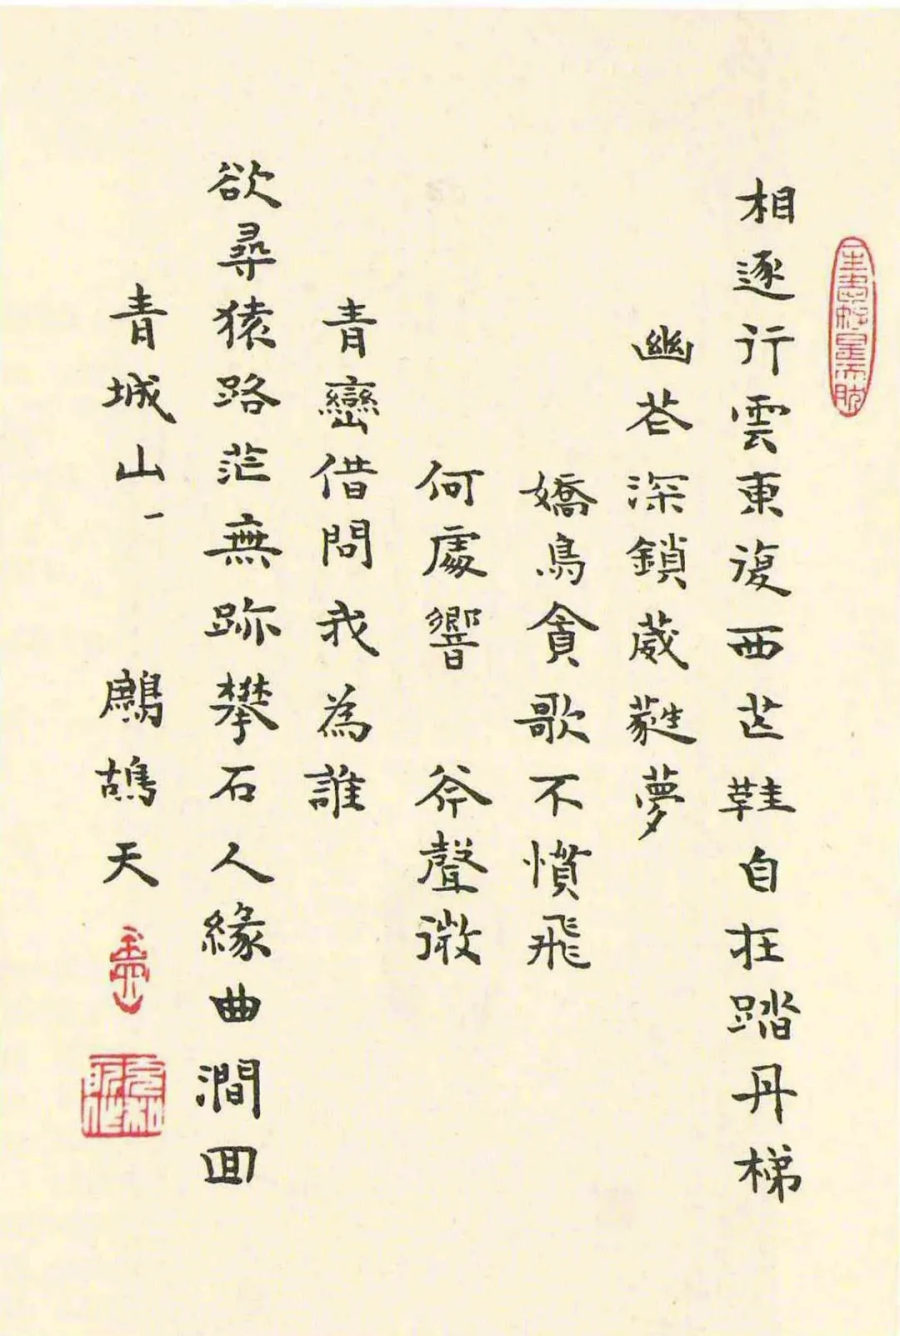 相逐行雲東復西芒鞋自在踏丹梯
幽花深鎖葳蕤夢
嬌鳥貪歌不憤飛
何處響 斧聲微
青巒借問我為誰
欲尋猿路茫無跡攀石人緣曲澗囬
青城山一 鷓鴣天